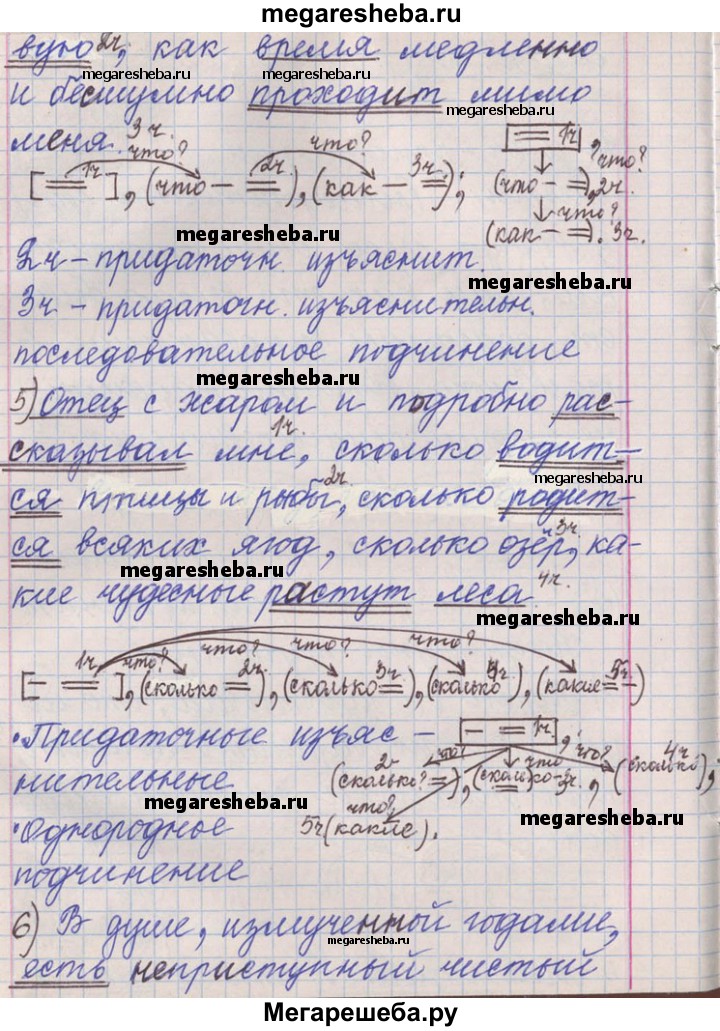 megaresheba.ru
вую 2ч, как время медленно
megaresheba.ru
и бесшумно проходит мимо
megaresheba.ru
меня. 3ч.
что? что? [= 1ч], что?
[= 1ч], (что – = 2ч), (как – = 3ч); (что – =), 2ч.
что?
megaresheba.ru (как – =). 3ч.
2ч – придаточн. изъяснит.
megaresheba.ru
3ч – придаточн. изъяснительн.
последовательное подчинение
megaresheba.ru
5) Отец с жаром и подробно рас-
сказывал мне 1ч., сколько водит-
megaresheba.ru
ся птицы и рыбы 2ч, сколько родит-
ся всяких ягод, сколько озёр 3ч, ка-
megaresheba.ru
кие чудесные растут леса 4ч.
megaresheba.ru
что? что? что? что?
[– = 1ч], (сколько = 2ч), (сколько = 3ч), (сколько 4ч), (какие = – 5ч)
• Придаточные изъяс- [– = 1ч],
что? что что?
нительные (сколько? =), (сколько – = 3ч), (сколько 4ч),
megaresheba.ru
что?
• Однородные 5ч (какие).
megaresheba.ru
подчинение
6) В душе, измученной годами,
megaresheba.ru
есть неприступный чистый
Мегарешеба.ру